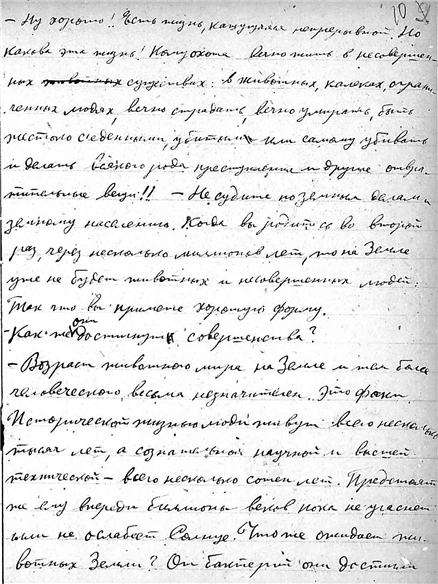 10
– Ну хорошо! Есть жизнь, кажущаяся непрерывной. Но
какова эта жизнь! Кому охота вечно жить в несовершен-
ных животных существах: в животных, калеках, ограни-
ченных людях, вечно страдать, вечно умирать, быть
жестоко съеденными, убитыми или самому убивать
и делать всякого рода преступления и другие отвра-
тительные вещи!! – Не судите по земным делам и
земному населению. Когда вы родитесь во второй
раз, через несколько миллионов лет, то на Земле
уже не будет животных и несовершенных людей.
Так что вы примете хорошую форму.
– Как же они достигнут совершенства?
– Возраст животного мира на Земле и тем более
человеческого, весьма незначителен. Это факт.
Исторической жизнью люди живут всего несколько
тысяч лет, а сознательной научной и высшей
технической – всего несколько сотен лет. Предстоят
же ему впереди биллионы веков пока не угаснет
или не ослабеет Солнце. Что же ожидает жи-
вотных Земли? От бактерий они достигли